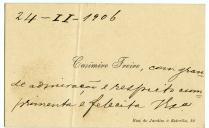 24-II-1906
Casimiro Freire, com gran
de admiração e respeito cum
primenta e felicita V.
Rua do Jardim á Estrella,